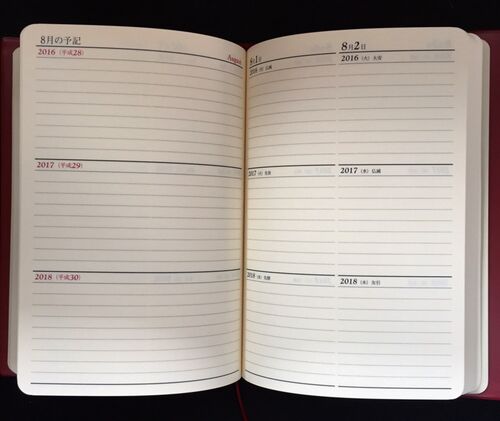 8月の予記
2016（平成28）
August
2017（平成29）
2018（平成30）
8月1日
2016（月）仏滅
2017（火）先負
2018（水）先勝
8月2日
2016（火）大安
2017（水）仏滅
2018（木）友引